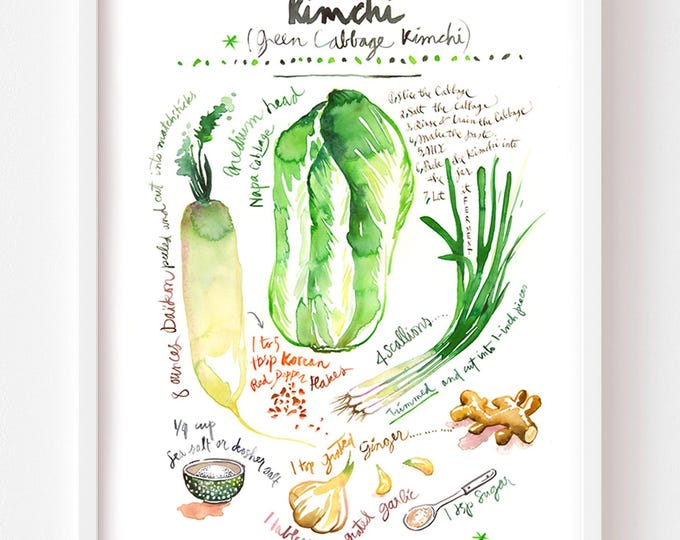 Kimchi
(Green Cabbage Kimchi)
8 ounces Daikon peeled and cut into matchsticks
medium head
Napa Cabbage
1. Slice the Cabbage
2. Salt the Cabbage
3. Rinse & Drain the Cabbage
4. Make the Paste
5. MIX
6. Pack the Kimchi into
the jar
7. Let it FERMENT
1 to 5
tbsp Korean
Red Pepper flakes
4 Scallions....
Trimmed and cut into 1-inch pieces
1/4 cup
Sea salt or kosher salt
1 tsp grated Ginger........
grated garlic
1 tsp Sugar